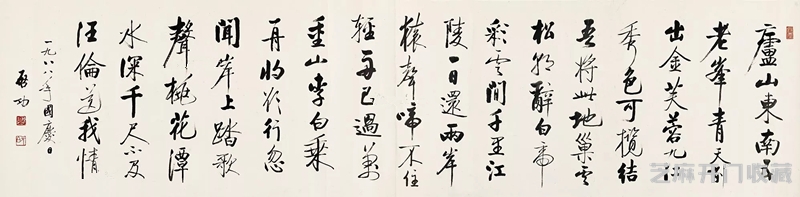 廬山東南五
老峯青天削
出金芙蓉九江
秀色可攬結
吾將此地巢雲
松朝辭白帝
彩雲間千里江
陵一日還兩岸
猿聲啼不住
輕舟已過萬
重山李白乘
舟將欲行忽
聞岸上踏歌
聲桃花潭
水深千尺不及
汪倫送我情
一九八八年國慶日
啟功
芝麻开门收藏